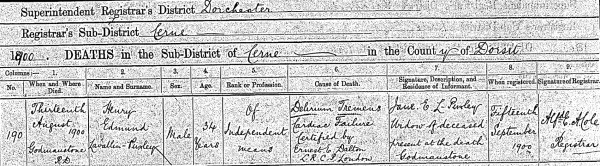 Superintendent Registrar's District Dorchester
Registrar's Sub-District Cerne
1900. DEATHS in the Sub-District of Cerne in the County of Dorset
Columns:— 1. 2. 3. 4. 5. 6. 7. 8. 9.
No. When and Where Died. Name and Surname. Sex. Age. Rank or Profession. Cause of Death. Signature, Description, and Residence of Informant. When registered. Signature of Registrar.
190 Thirteenth August 1900 Godmanstone R.D.
Henry Edmund Cavallin-Puxley
Male
34 Years
Of Independent means
Delerium Tremens
Cardiac Failure
Certified by
Ernest E. Dalton
L.R.C.P. London
Jane E L Puxley
Widow of deceased
present at the death
Godmanstone
Fifteenth September 1900
Registrar